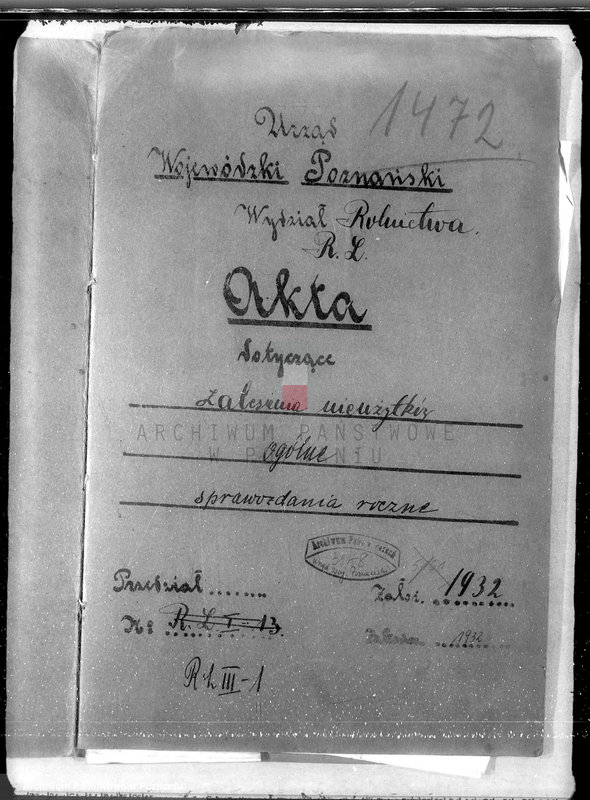 1472
Urząd
Wojewódzki Poznański
Wydział Rolnictwa.
R. L.
Akta
dotyczące
zalesienia nieużytków
ARCHIWUM PAŃSTWOWE
W POZNANIU
ogólne
sprawozdania roczne
Archiwum Państw. Poznań
Urząd Woj. Poznański
Przedział .......
Założ. 1932
Nr R. L I - 13.
1932
R. L. III - 1